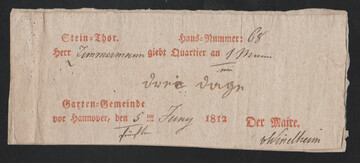 Stein-Thor. Haus-Nummer: 68
Herr Zimmermann giebt Quartier an 1 Mann
drei dage
Garten-Gemeinde
vor Hannover, den 5ten Juny 1812 Der Maire.